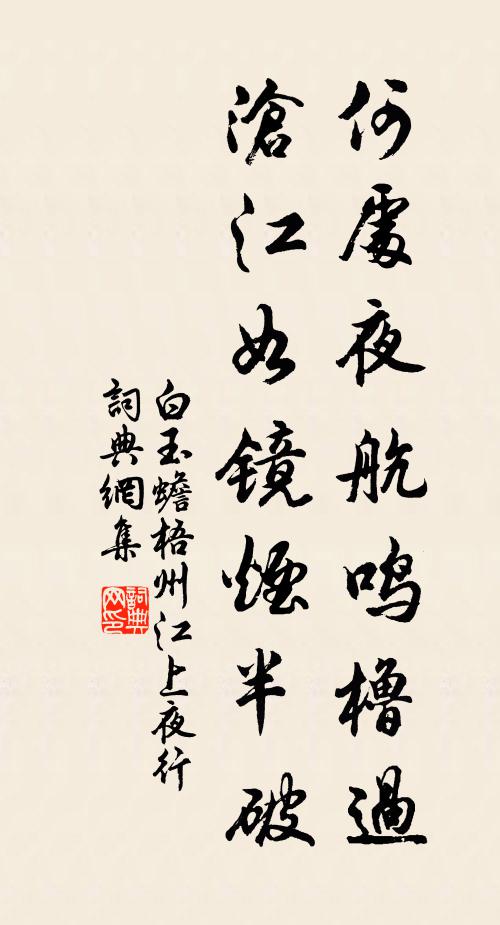 何處夜航鸣櫓過
滄江如镜煙半破
白玉蟾梧州江上夜行
詞典網集
詞典网印